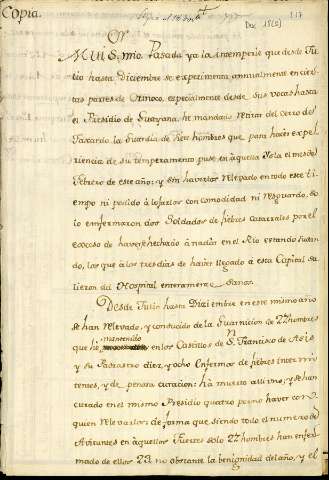 Copia.
Doc 15(2)
117
Sor
Mui S. mio Pasada ya la intemperie que desde Ju-
lio hasta Diciembre se experimenta annualmente en cier-
tas partes de Orinoco, especialmente desde sus vocas hasta
el Presidio de Guayana, he mandado retirar del Cerro del
Fajardo la Guardia de siete hombres que para hacer expe-
riencia de su temperamento puse en aquella Isla el mes de
Febrero de este año; y sin haverlos relevado en todo este ti-
empo ni podido alojarlos con comodidad ni resguardo, so-
lo enfermaron dos Soldados de fiebres catarrales por el
exceso de haverse hechado a nadar en el Rio estando sudan-
do, los que à los tres dias de haver llegado à esta Capital sa-
lieron del Hospital enteramente sanos.
Desde Julio hasta Diciembre en este mismo año
se han relevado, y conducido de la Guarnicion de 77 hombres
que he mantenido en los Castillos de Sn. Francisco de Asis
y su Padrastro diez, y ocho Enfermos de fiebres intermi-
tentes, y de penosa curacion: ha muerto uno, y se han
curado en el mismo Presidio quatro por no haver con
quien relevarlos de forma que siendo todo el numero de
Avitantes en aquellos Fuertes solo 77 hombres han enfer-
mado de ellos 23 no obstante la benignidad del año, y el